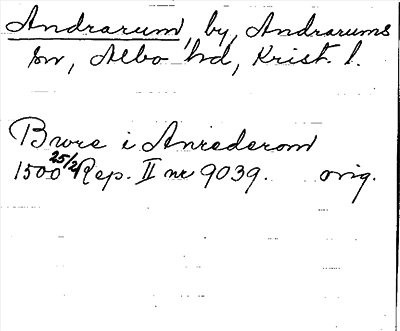 Andrarum, by, Andrarums
sn, Albo hd, Krist. l.
Bwre i Anrederom
1500 25/2 Rep. II nr 9039. orig.